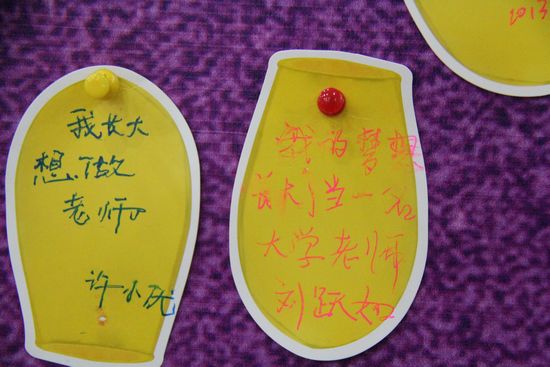 我长大
想做
老师
许小优
我的梦想
长大了当一名
大学老师
刘跃如
2013